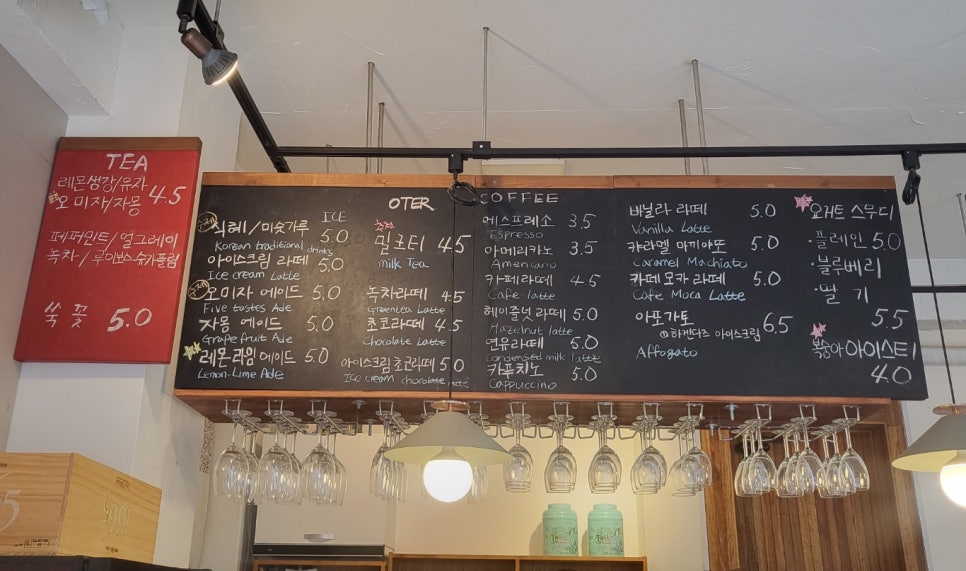 TEA
레몬생강/유자
오미자/자몽 4.5
페퍼민트/얼그레이
녹차/루이보스
쑥꽃 5.0
OTER
ICE
식혜/미숫가루 5.0
Korean traditional drinks
아이스크림 라떼 5.0
Ice cream Latte
오미자 에이드 5.0
Five tastes Ade
자몽 에이드 5.0
Grape fruit Ade
레몬라임에이드 5.0
Lemon-Lime Ade
밀크티 4.5
milk Tea
녹차라떼 4.5
Greentea Latte
초코라떼 4.5
Chocolate Latte
아이스크림초코라떼 5.0
Ice cream chocolate latte
COFFEE
에스프레소 3.5
Espresso
아메리카노 3.5
Americano
카페라떼 4.5
Cafe latte
헤이즐넛 라떼 5.0
Hazelnut latte
연유라떼 5.0
Condensed milk latte
카푸치노 5.0
Cappuccino
바닐라 라떼 5.0
Vanilla Latte
캬라멜 마끼야또 5.0
Caramel Machiato
카페 모카 라떼 5.0
Cafe Moca Latte
아포가토 6.5
하겐다즈 아이스크림
Affogato
요거트 스무디
·플레인 5.0
·블루베리
·딸기
5.5
복숭아 아이스티
4.0